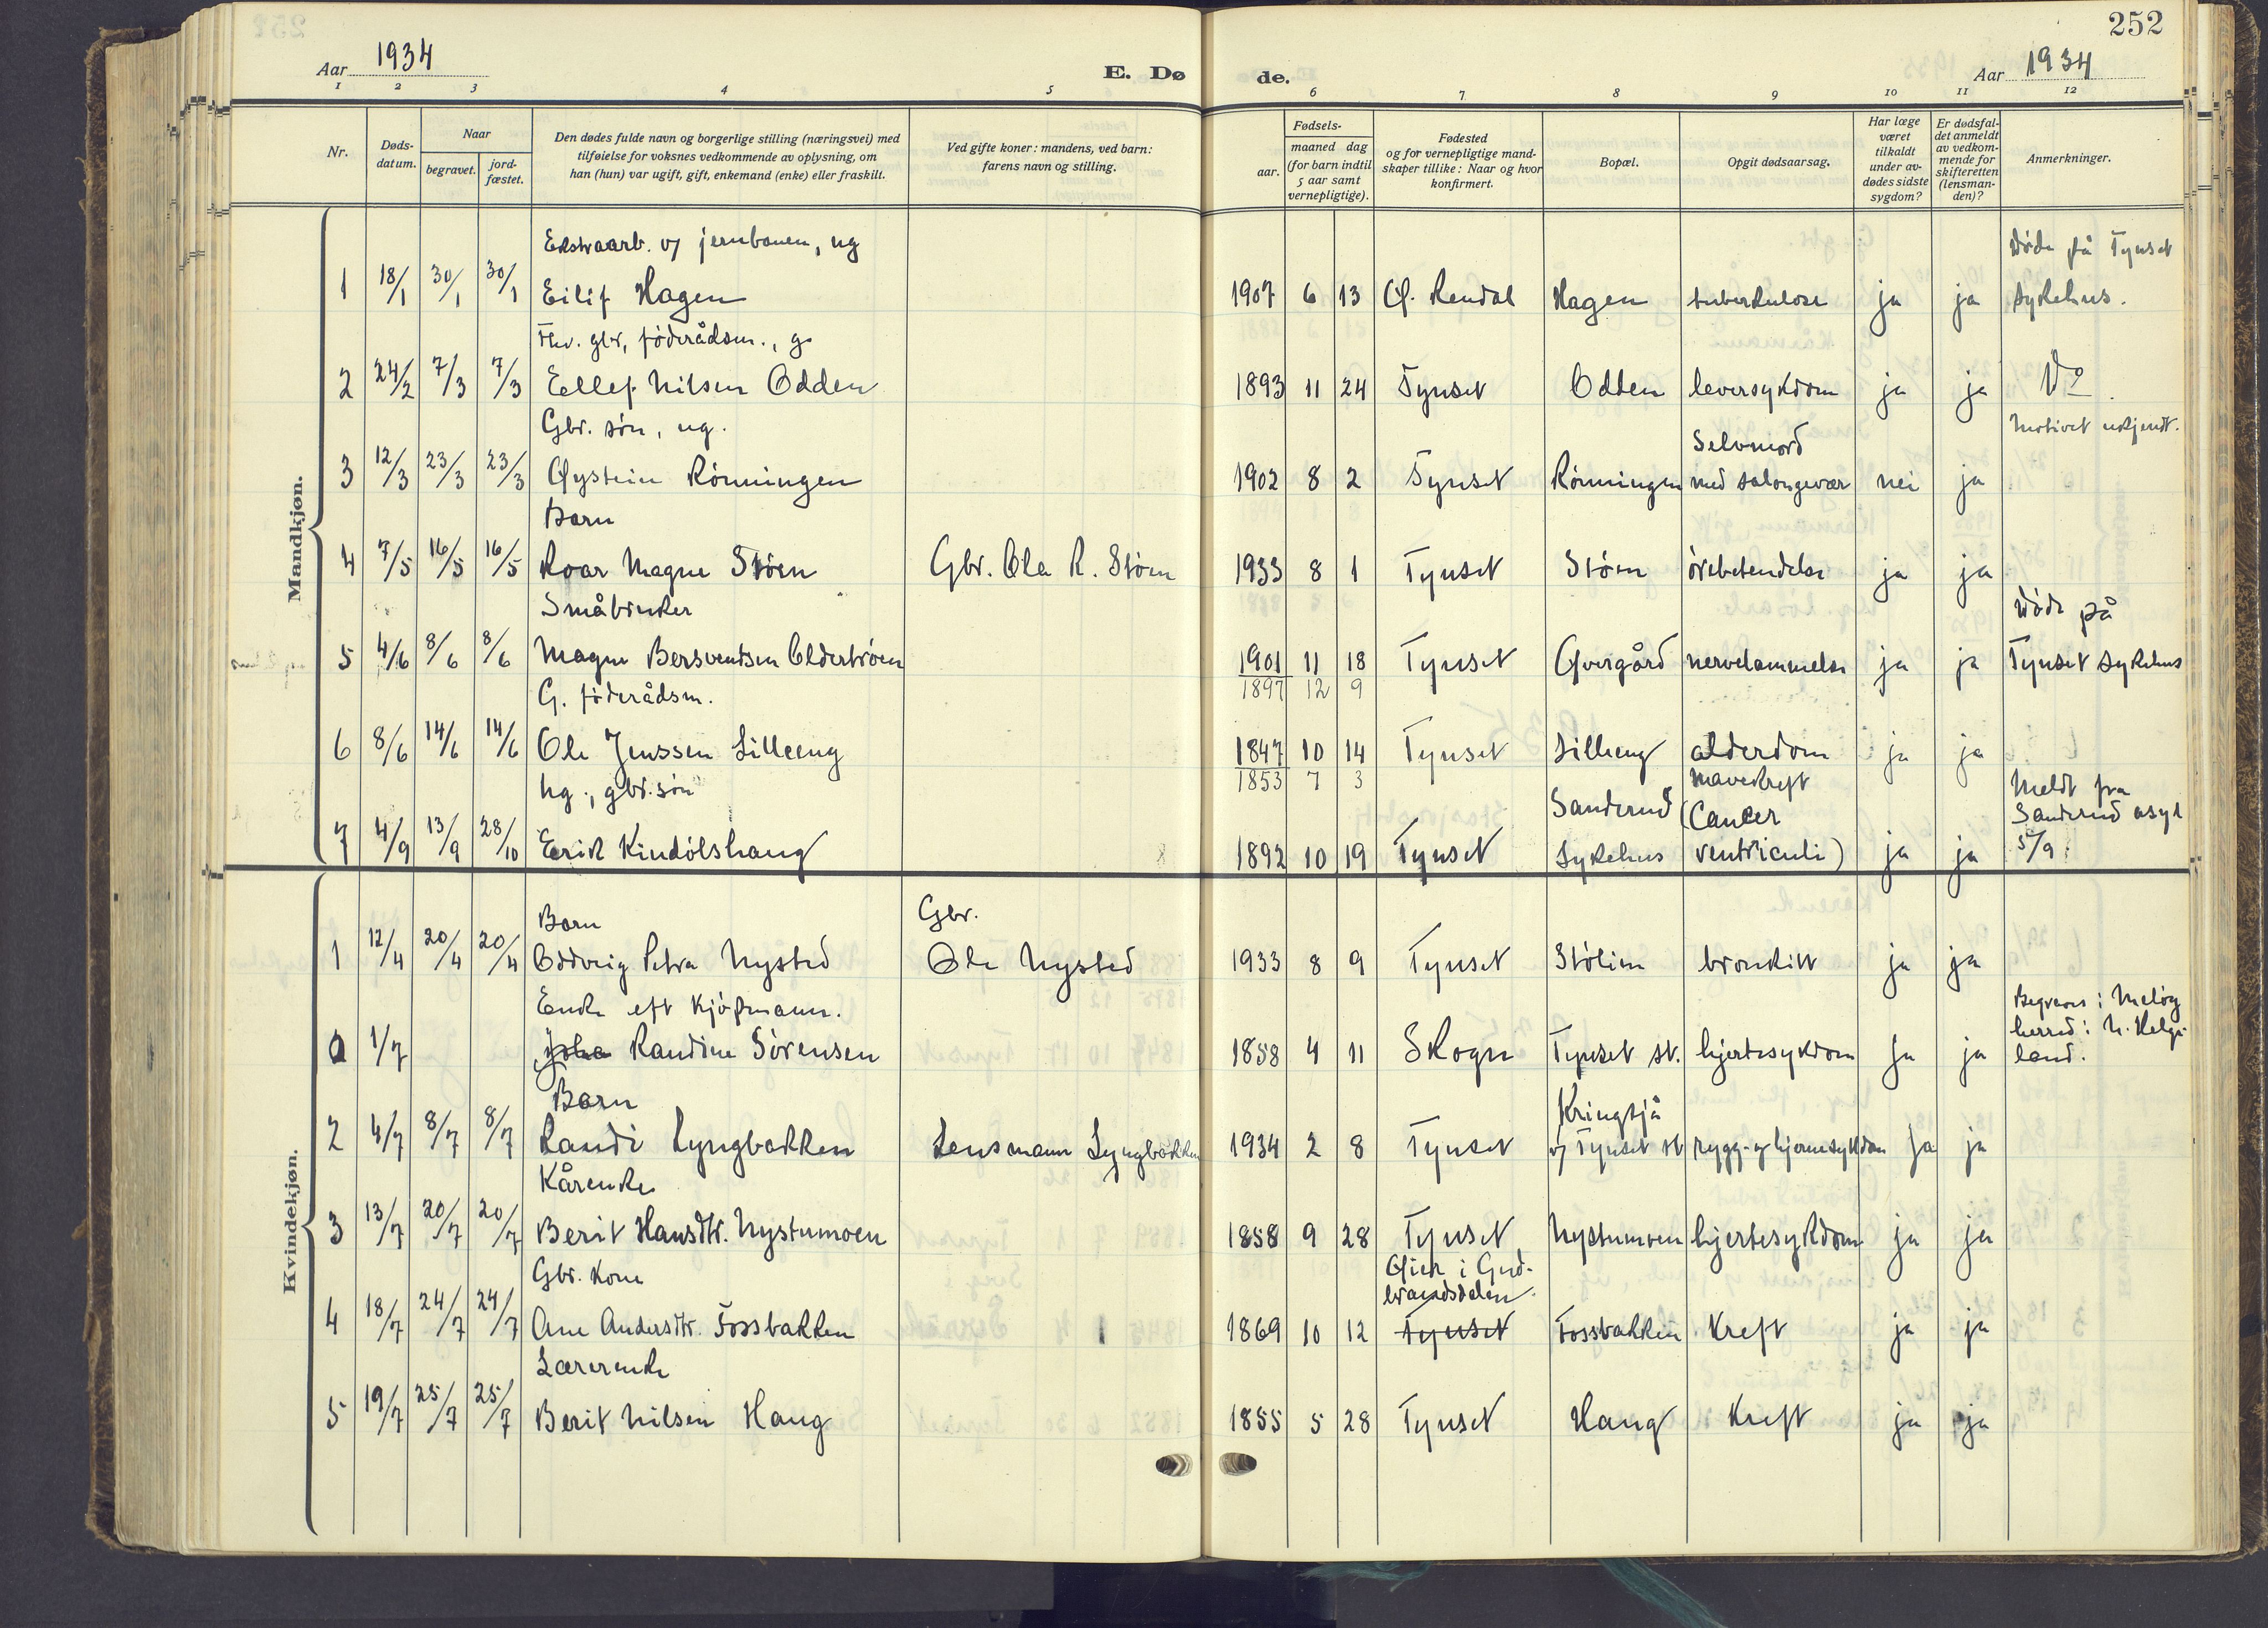 252
Aar 1934
E. Dø
de.
Aar 1934
1 2 3 4 5 6 7 8 9 10 11 12
Nr.
Døds-
datum.
Naar
begravet.
jord-
fæstet.
Den dødes fulde navn og borgerlige stilling (næringsvei) med
tilføielse for voksnes vedkommende av oplysning, om
han (hun) var ugift, gift, enkemand (enke) eller fraskilt.
Ved gifte koner: mandens, ved barn:
farens navn og stilling.
Fødsels-
aar.
maaned dag
(for barn indtil
5 aar samt
vernepligtige).
Fødested
og for vernepligtige mand-
skaper tillike: Naar og hvor
konfirmert.
Bopæl.
Opgit dødsaarsag.
Har læge
været
tilkaldt
under av-
dødes sidste
sygdom?
Er dødsfal-
det anmeldt
av vedkom-
mende for
skifteretten
(lensman-
den)?
Anmerkninger.
Mandkjøn.
Ekstraarb. v/ jernbanen, ug Døde på Tynset
1 18/1 30/1 30/1 Eilif Hagen 1907 6 13 Ø. Rendal Hagen tuberkulose ja ja sykehus.
Fhv. gbr, föderådsm., g.
2 24/2 7/3 7/3 Eellef Nilsen Odden 1893 11 24 Tynset Odden leversykdom ja ja Do
Gbr. sön, ug. Selvmord Motivet ukjendt.
3 12/3 23/3 23/3 Øystein Rönningen 1902 8 2 Tynset Rönningen med salongevær nei ja
Barn
4 7/5 16/5 16/5 Roar Magne Stöen Gbr. Ola R. Stöen 1933 8 1 Tynset Stöen örebetendelse ja ja
Småbruker Döde på
5 4/6 8/6 8/6 Magne Bersvendsen Oldertröen 1901 11 18 Tynset Øvergård nervelammelse ja ja Tynset sykehus
G. föderådsm. 1897 12 9
6 8/6 14/6 14/6 Ole Jenssen Lilleeng 1847 10 14 Tynset Lilleeng alderdom ja ja
ug., gbr.sön 1853 7 3 Sanderud mavekreft (Cancer Meldt fra Sanderud asyl
7 4/9 13/9 28/10 Erik Kindölshaug 1892 10 19 Tynset Sykehus ventriculi) ja ja 5/9
Kvindekjøn.
Barn Gbr.
1 12/4 20/4 20/4 Oddveig Petra Nysted Ole Nysted 1933 8 9 Tynset Stölien bronkitt ja ja
Enke eft kjöpmann. Begraves i Melöy herred i N. Helge-
0 1/7 Randine Sörensen 1858 4 11 Skogn Tynset st. hjertesykdom ja ja land.
Barn Kringsjå
2 4/7 8/7 8/7 Randi Lyngbakken Lensmann Lyngbakken 1934 2 8 Tynset v/ Tynset st rygg- og hjernesykdom ja ja
Kårenke
3 13/7 20/7 20/7 Berit Hansdtr. Nystumoen 1858 9 28 Tynset Nystumoen hjertesykdom ja ja
Gbr. kone Øier i Gud-
brandsdalen.
4 18/7 24/7 24/7 Ane Andersdtr. Fossbakken 1869 10 12 Tynset Fossbakken Kreft ja ja
Lærerenke
5 19/7 25/7 25/7 Berit Nilsen Haug 1855 5 28 Tynset Haug Kreft ja ja